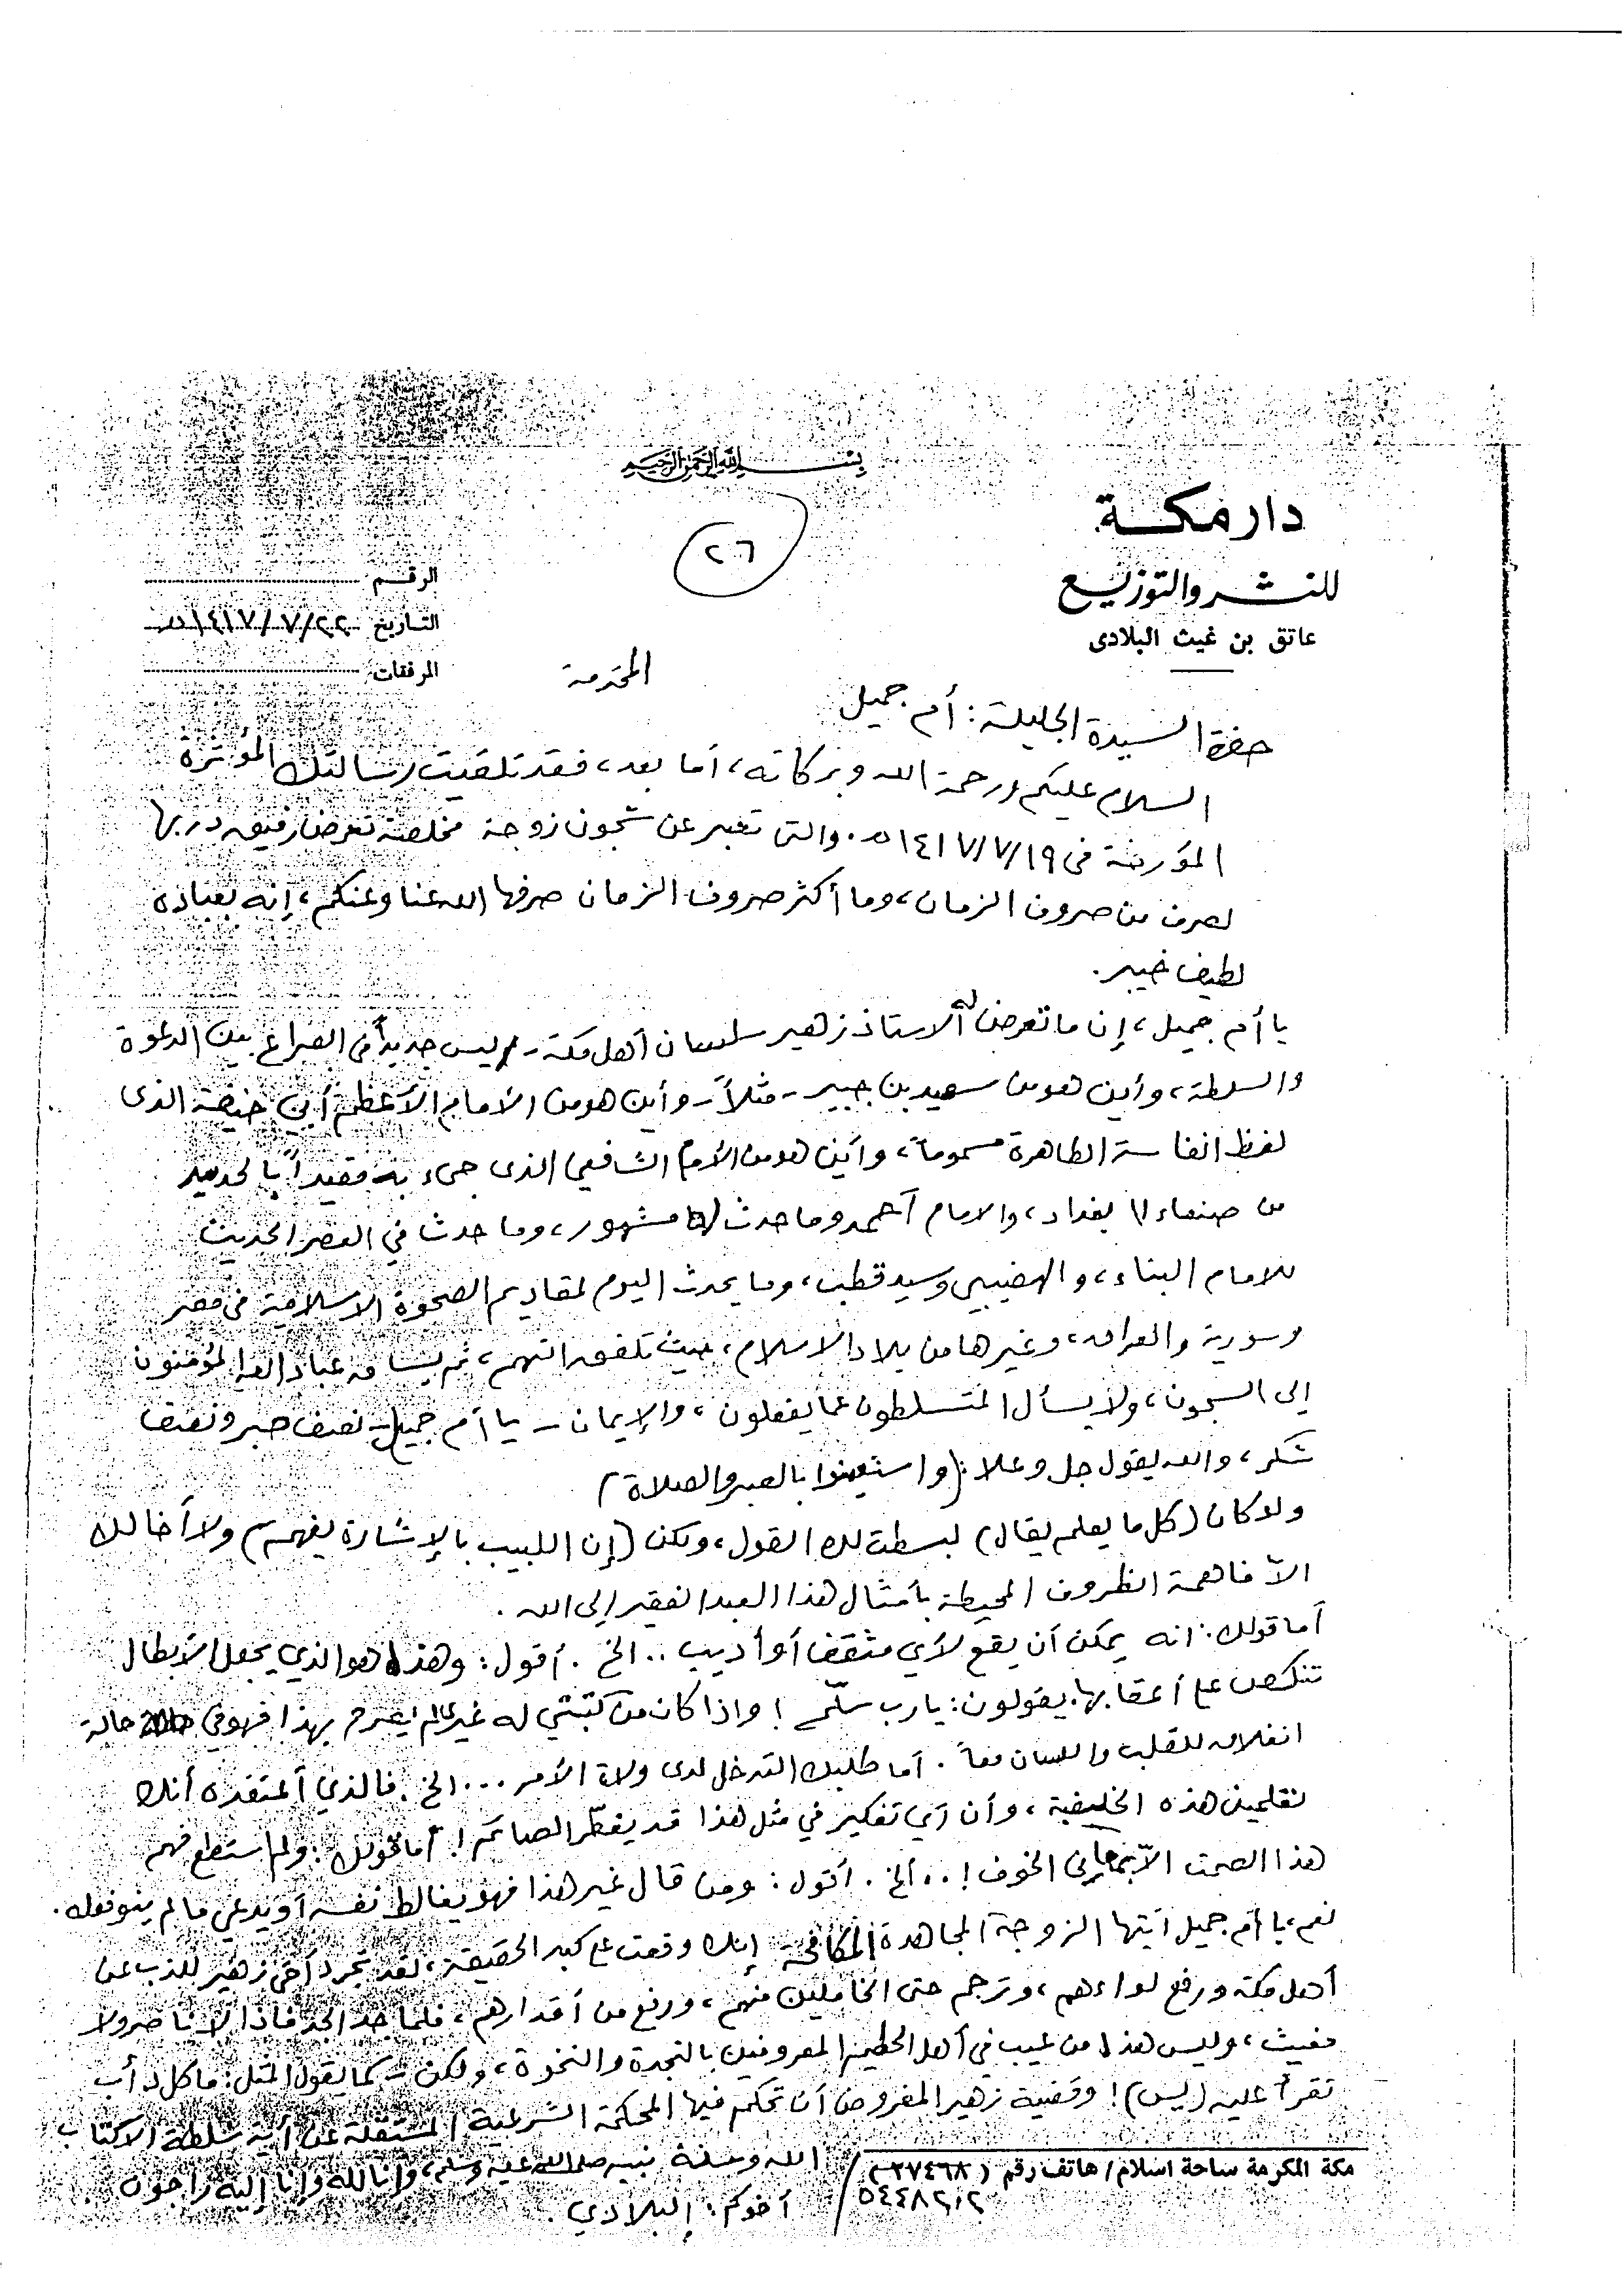 بسم الله الرحمن الرحيم
دار مكة
للنشر والتوزيع
عاتق بن غيث البلادى
٢٠٦
الرقم
التاريخ ٢٢/٧/١٤١٧هـ
المرفقات
حضرة السيدة الجليلة: أم جميل المحترمة
السلام عليكم ورحمة الله وبركاته، أما بعد، فقد تلقيت رسالتك المؤثرة
المؤرخة فى ١٩/٧/١٤١٧هـ. والتى تعبر عن شجون زوجة مخلصة تعرض رفيق دربها
لصرف من صروف الزمان، وما أكثر صروف الزمان صرفها الله عنا وعنكم، إنه بعباده
لطيف خبير.
يا أم جميل، إن ما تعرض له الاستاذ زهير سلسان أهل مكة - ليس جديداً فى الصراع بين الدعوة
والسلطة، وأين هو من سعيد بن جبير - مثلاً - وأين هو من الامام الأعظم أبى حنيفة الذى
لفظ انفاسه الطاهرة مسموماً، وأين هو من الأمام الشافعي الذى جىء به مقيداً بالحديد
من صنعاء الى بغداد، والامام أحمد وما حدث له مشهور، وما حدث في العصر الحديث
للامام البناء، والهضيبي وسيد قطب، وما يحدث اليوم لمقاديم الصحوة الاسلامية فى مصر
وسورية والعراق، وغيرها من بلاد الاسلام، حيث تلفق التهم، ثم يساق عباد الله المؤمنون
إلى السجون، ولا يسأل المتسلطون عما يفعلون، والإيمان - يا أم جميل - نصف صبر ونصف
شكر، والله يقول جل وعلا: (واستعينوا بالصبر والصلاة)
ولو كان (كل ما يعلم يقال) لبسطت لك القول، ولكن (إن اللبيب بالإشارة يفهم) ولا أخالك
الاّ فاهمة الظروف المحيطة بأمثال هذا العبد الفقير إلى الله.
أما قولك: انه يمكن أن يقع لأي مثقف أو أديب .. الخ. أقول: وهذا هو الذي يجعل الأبطال
تنكص على أعقابها. يقولون: يارب سلّم! واذا كان من كتبتي له غير عالم بهذا فهو في حالة
انغلاق للقلب واللسان معاً. أما طلبك التدخل لدى ولاة الأمر... الخ. فالذي أعتقده أنك
تعلمين هذه الخليفية، وأن أي تفكير في مثل هذا قد يفطّر الصائم! أما قولك: ولم استطع فهم
هذا الصمت الاّ بمعانى الخوف! .. الخ. أقول: ومن قال غير هذا فهو يغالط نفسه أو يدعي ما لم يتوفر له.
نعم، يا أم جميل أيتها الزوجة المجاهدة المكافحة إنك وقعت على كبد الحقيقة، لقد تجرد أخى زهير للذب عن
أهل مكة ورفع لواءهم، وترجم حتى الخاملين منهم، ورفع من أقدارهم، فلما جد الجد فاذا لا ناصر ولا
مغيث، وليس هذا من عيب في أهل الحطيم المعروفين بالنجدة والنخوة، ولكن - كما يقول المثل: ما كل دأب
تقرأ عليه (يس)! وقضية زهير المفروض أن تحكم فيها المحكمة الشرعية المستقلة عن أية سلطة الا كتاب
الله وسنة نبيه صلى الله عليه وسلم، وانا لله وإنا إليه راجعون
أخوكم: البلادي
مكة المكرمة ساحة اسلام/ هاتف رقم (٢٧٤٦٨)
٥٤٤٨٢٠٢